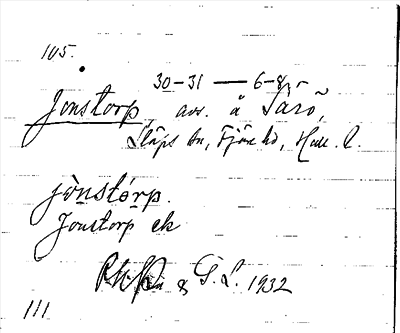 105.
30-31 — 6-8,
Jonstorp, avs. å Särö,
Släps sn, Fjäre hd, Hall. l.
jònstórp.
Jonstorp ek
& G. L. 1932
111